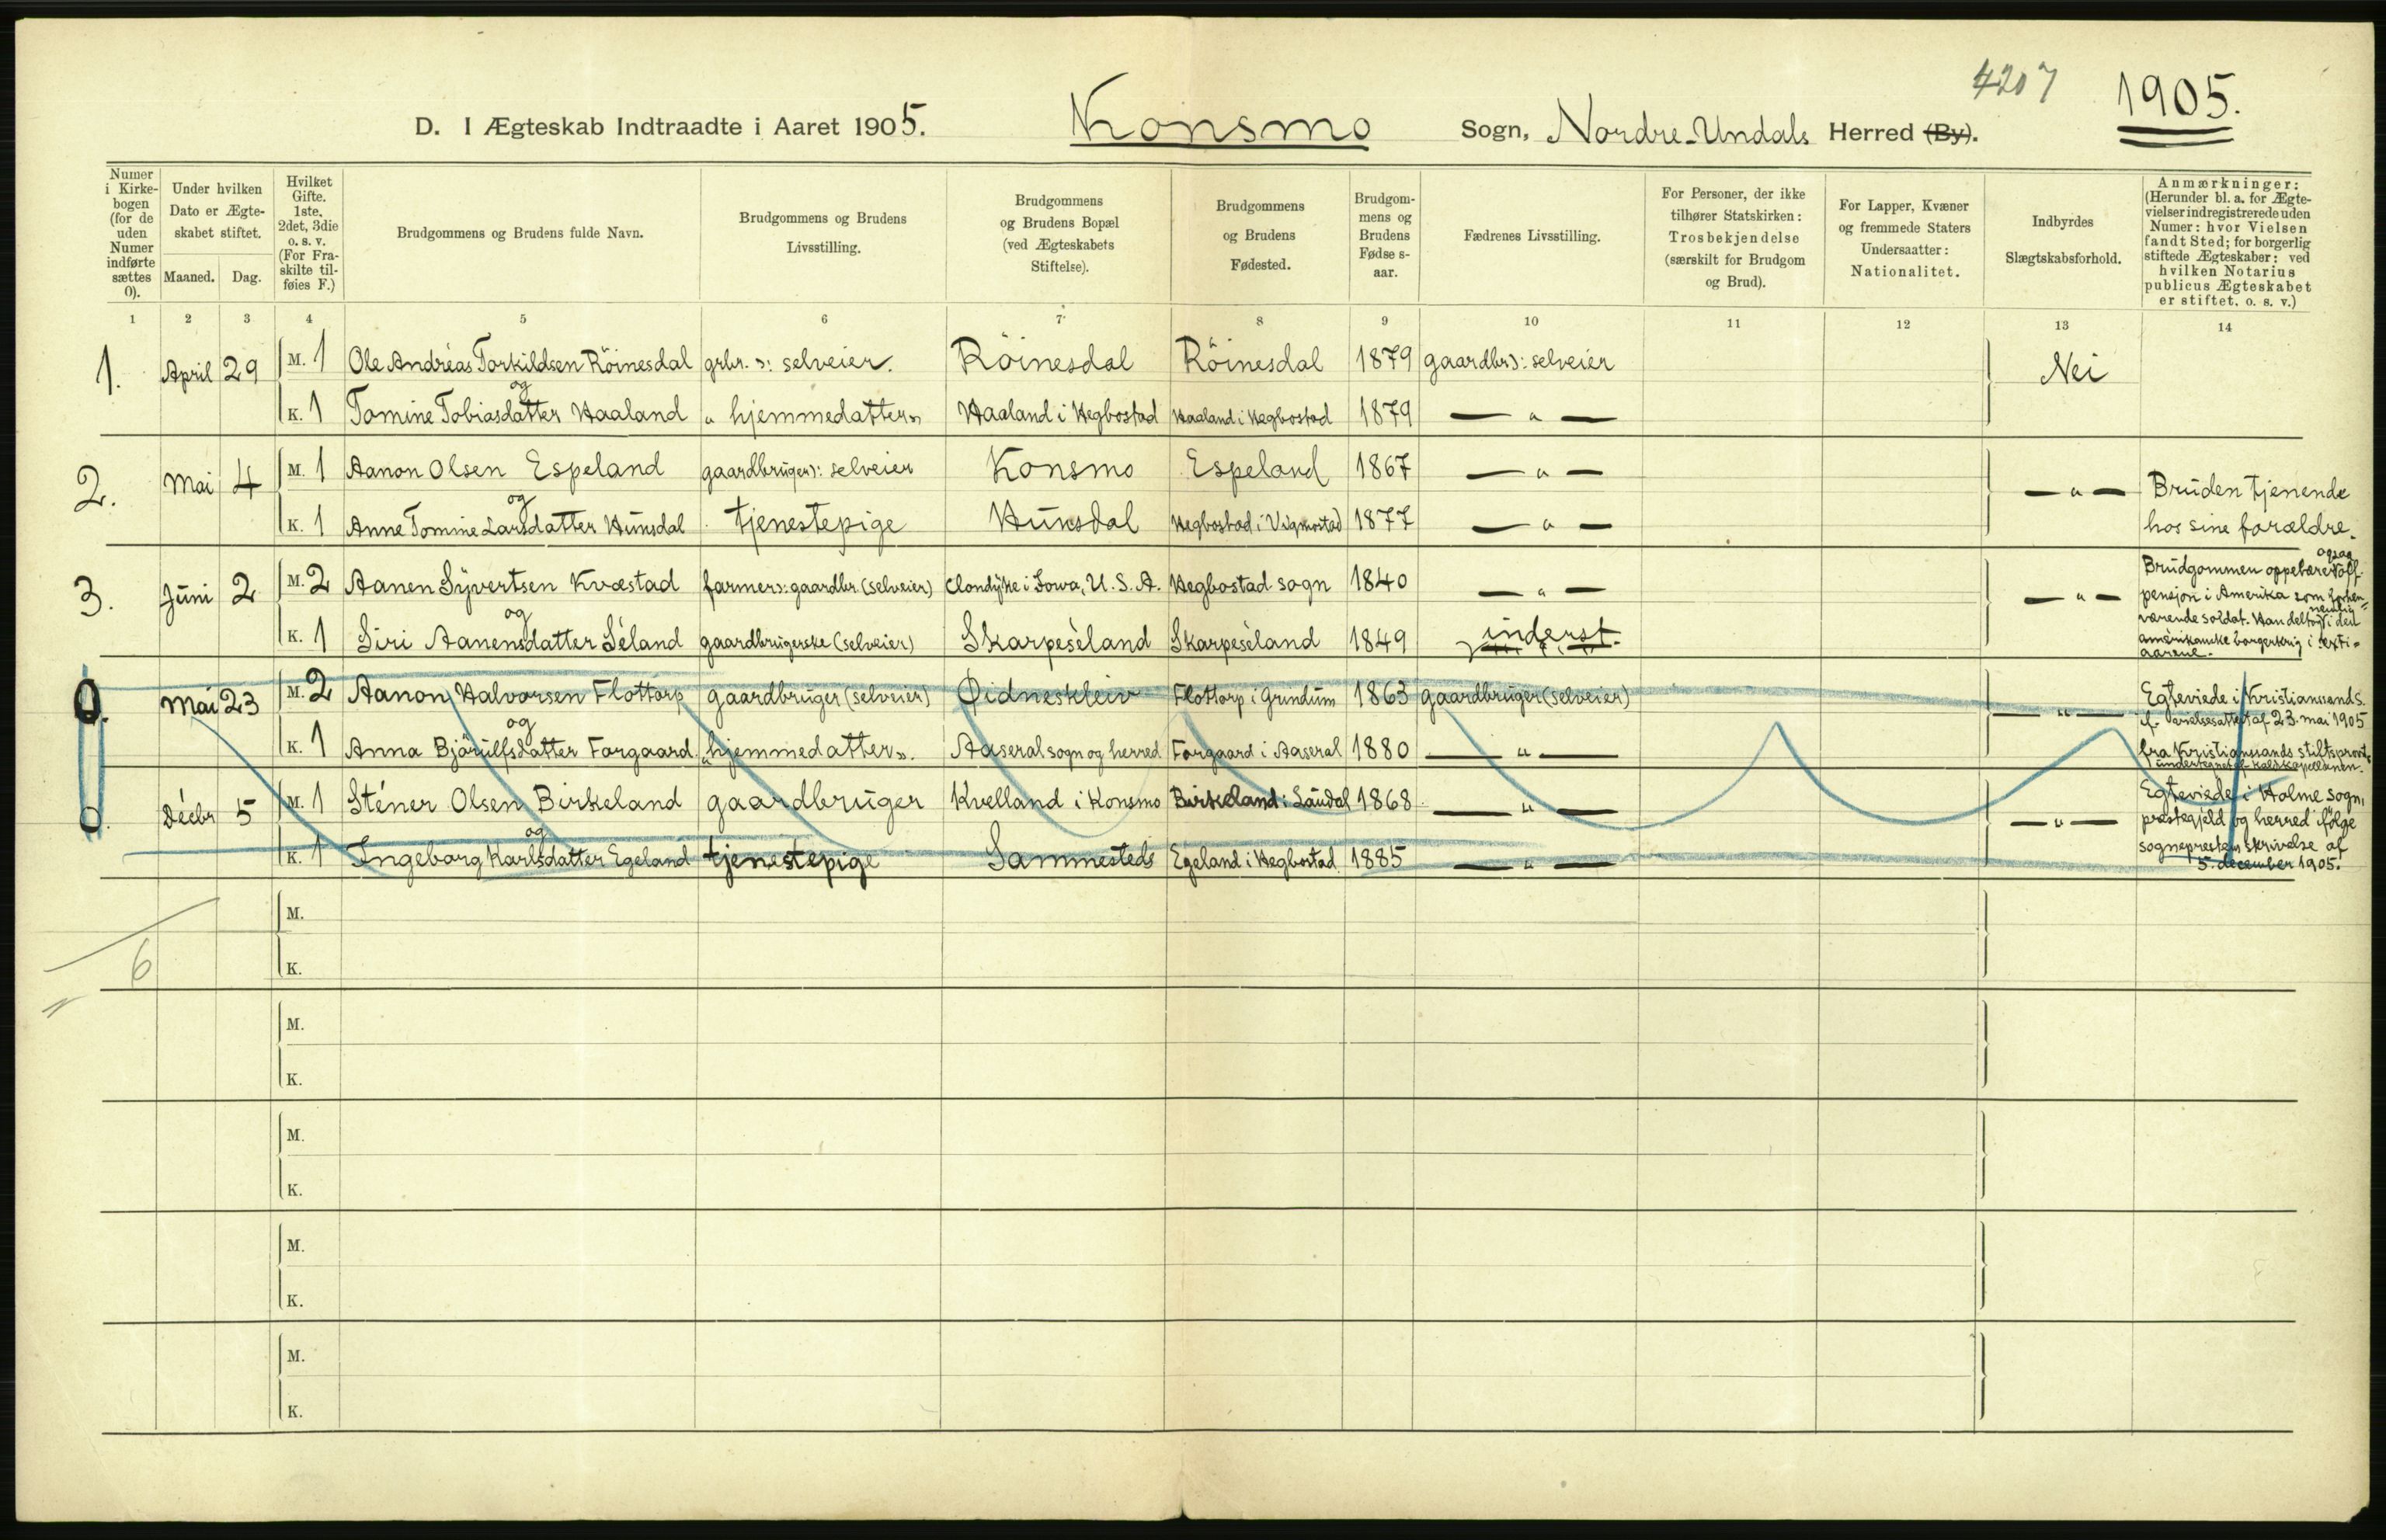 4207
1905.
D. I Ægteskab Indtraadte i Aaret 1905. Konsmo Sogn, Nordre-Undals Herred (By).
Numer i Kirkebogen (for de uden Numer indførte sættes 0).
Under hvilken Dato er Ægteskabet stiftet.
Maaned. Dag.
Hvilket Gifte. 1ste, 2det, 3die o. s. v. (For Fraskilte tilføies F.)
Brudgommens og Brudens fulde Navn.
Brudgommens og Brudens Livsstilling.
Brudgommens og Brudens Bopæl (ved Ægteskabets Stiftelse).
Brudgommens og Brudens Fødested.
Brudgommens og Brudens Fødselsaar.
Fædrenes Livsstilling.
For Personer, der ikke tilhører Statskirken: Trosbekjendelse (særskilt for Brudgom og Brud).
For Lapper, Kvæner og fremmede Staters Undersaatter: Nationalitet.
Indbyrdes Slægtskabsforhold.
Anmærkninger: (Herunder bl. a. for Ægtevielser indregistrerede uden Numer: hvor Vielsen fandt Sted; for borgerlig stiftede Ægteskaber: ved hvilken Notarius publicus Ægteskabet er stiftet, o. s. v.)
1 2 3 4 5 6 7 8 9 10 11 12 13 14
1. April 29 M. 1 Ole Andréas Torkildsen Röinesdal grbr. ɔ: selveier. Röinesdal Röinesdal 1879 gaardbr ɔ: selveier Nei
og
K. 1 Tomine Tobiasdatter Haaland „hjemmedatter" Haaland i Hegbostad Haaland i Hegbostad 1879 — " —
2. Mai 4 M. 1 Aanon Olsen Espeland gaardbruger ɔ: selveier Konsmo Espeland 1867 — " — — " — Bruden tjenende
og
K. 1 Anne Tomine Larsdatter Hunsdal tjenestepige Hunsdal Hegbostad i Vigmostad 1877 — " — hos sine forældre.
3. Juni 2 M. 2 Aanen Syvertsen Kvæstad farmer ɔ: gaardbr. (selveier) Clondyke i Iowa, U. S. A. Hegbostad sogn 1840 — " — — " — Brudgommen oppebærer ogsaa off.
pensjon i Amerika som forhen-
og
værende soldat. Han deltog nemlig i den
K. 1 Siri Aanensdatter Séland gaardbrugerske (selveier) Skarpeséland Skarpeséland 1849 inderst.
amerikanske borgerkrig i sexti-
aarene.
0. Mai 23 M. 2 Aanon Halvorsen Flottorp gaardbruger (selveier) Øidneskleiv Flottorp i Grindum 1863 gaardbruger (selveier) — " — Egteviede i Kristianssands.
af 23. mai 1905
og
K. 1 Anna Björulfsdatter Forgaard „hjemmedatter". Aaseral sogn og herred Forgaard i Aaseral 1880 — " — fra Kristianssands stiftsprovst
0. Décbr 5 M. 1 Sténer Olsen Birkeland gaardbruger Kvelland i Konsmo Birkeland i Laudal 1868 — " — — " — Egteviede i Holme sogn,
præstegjeld og herred ifølge
og
sogneprestens skrivelse af
K. 1 Ingeborg Karlsdatter Egeland tjenestepige Sammesteds Egeland i Hegbostad 1885 — " — 5. december 1905.
M.
6
K.
M.
K.
M.
K.
M.
K.
M.
K.